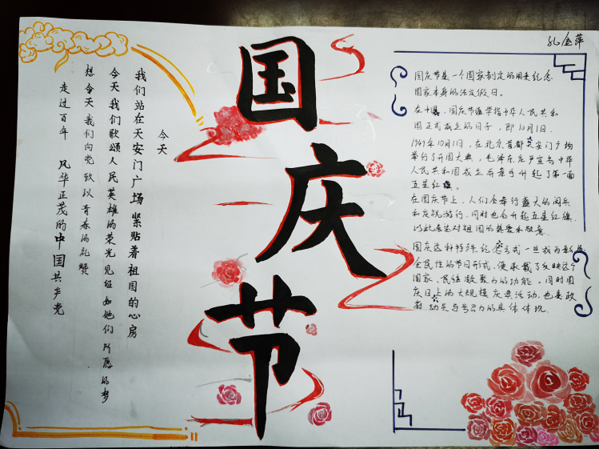 国庆节
今天
我们站在天安门广场 紧贴着祖国的心房
今天我们歌颂人民英雄的荣光 见证如他们所愿的梦
想今天我们向党致以青春的礼赞
走过百年 风华正茂的中国共产党
国庆节是一个国家制定的用来纪念
国家本身的法定假日。
在中国，国庆节 指中华人民共和
国正式成立的日子，即10月1日。
1949年10月1日，在北京首都天安门广场
举行了开国大典，毛泽东庄严宣告中华
人民共和国成立并亲手升起了第一面
五星红旗。
在国庆节上，人们会举行盛大的阅兵
和庆祝游行，同时也会升起五星红旗，
以此表达对祖国的热爱和敬意。
国庆这种特殊纪念方式一旦成为新
全民性的节日形式，便承载了反映这个
国家、民族凝聚力的功能。同时国
庆日上的大规模庆典活动，也是政
府动员与号召力的具体体现